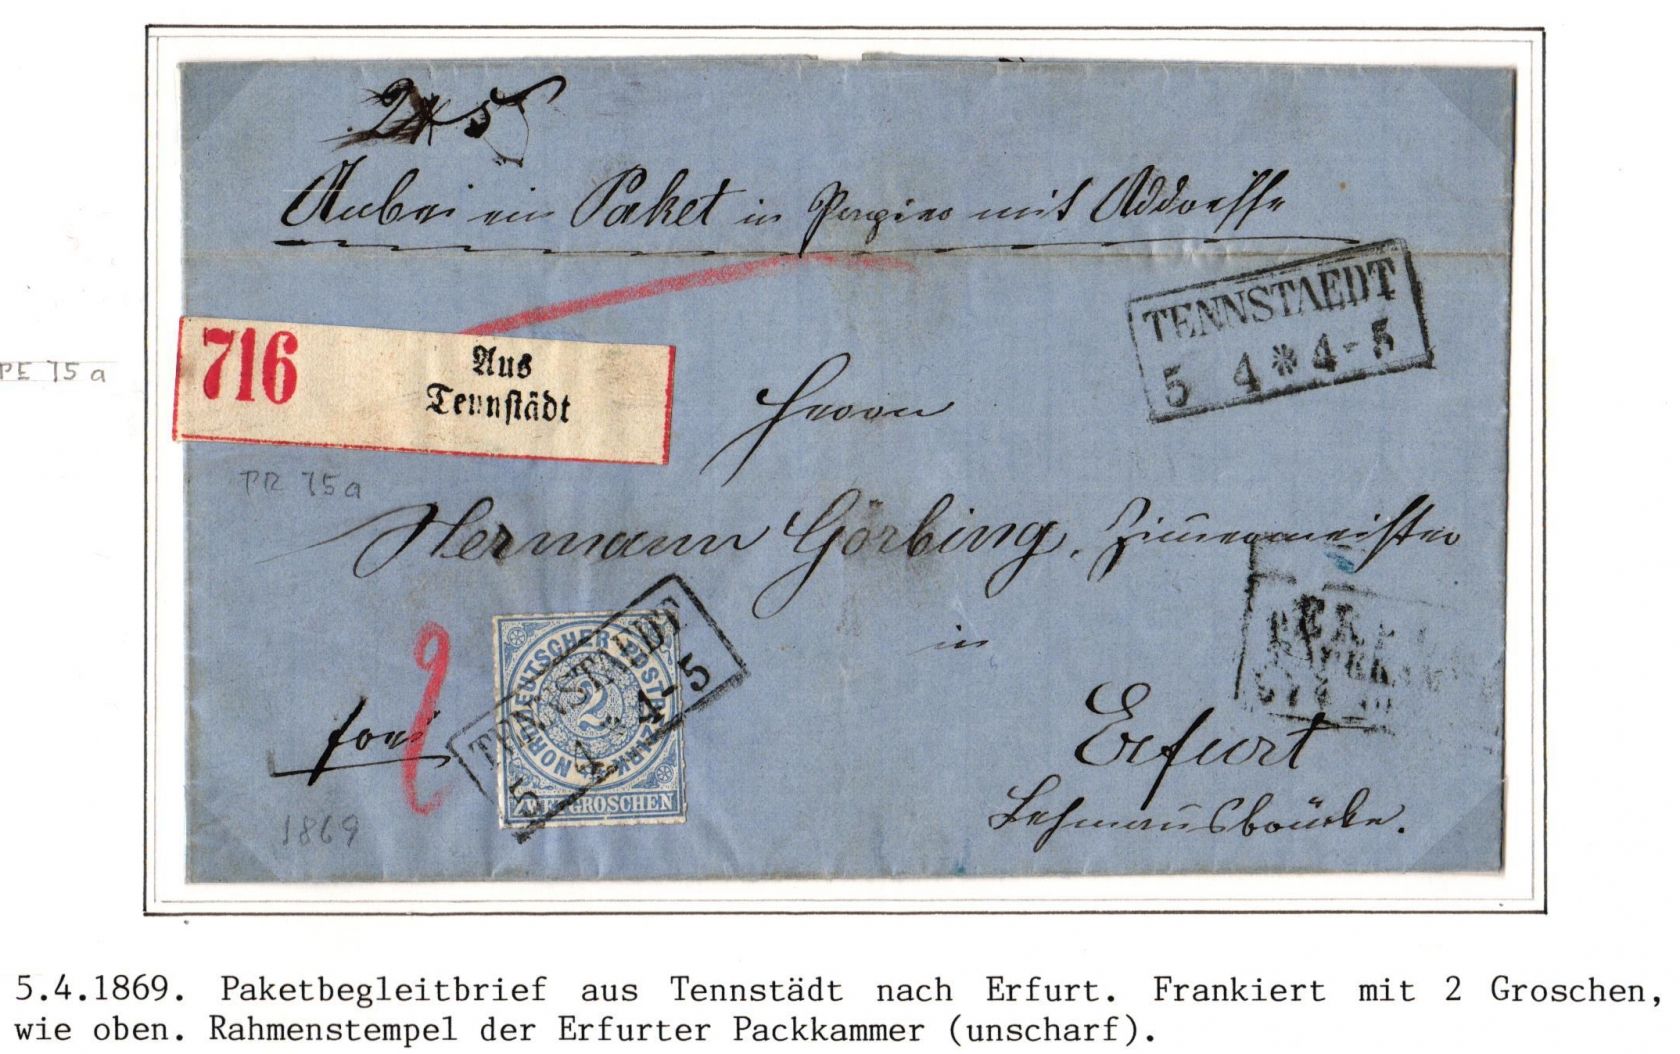 2 # 5
Anbei ein Paket in Papier mit Addresse
TENNSTAEDT
5 4 * 4-5
716
Aus
Tennstädt
PE 75 a
PR 75a
Herrn
Hermann Görbing, Zimmermeister
in
Erfurt
Lehmannsbrücke.
frei
2
1869
NORDDEUTSCHER POSTBEZIRK
2
ZWEI GROSCHEN
TENNSTAEDT
5 4 * 4-5
5.4.1869. Paketbegleitbrief aus Tennstädt nach Erfurt. Frankiert mit 2 Groschen,
wie oben. Rahmenstempel der Erfurter Packkammer (unscharf).